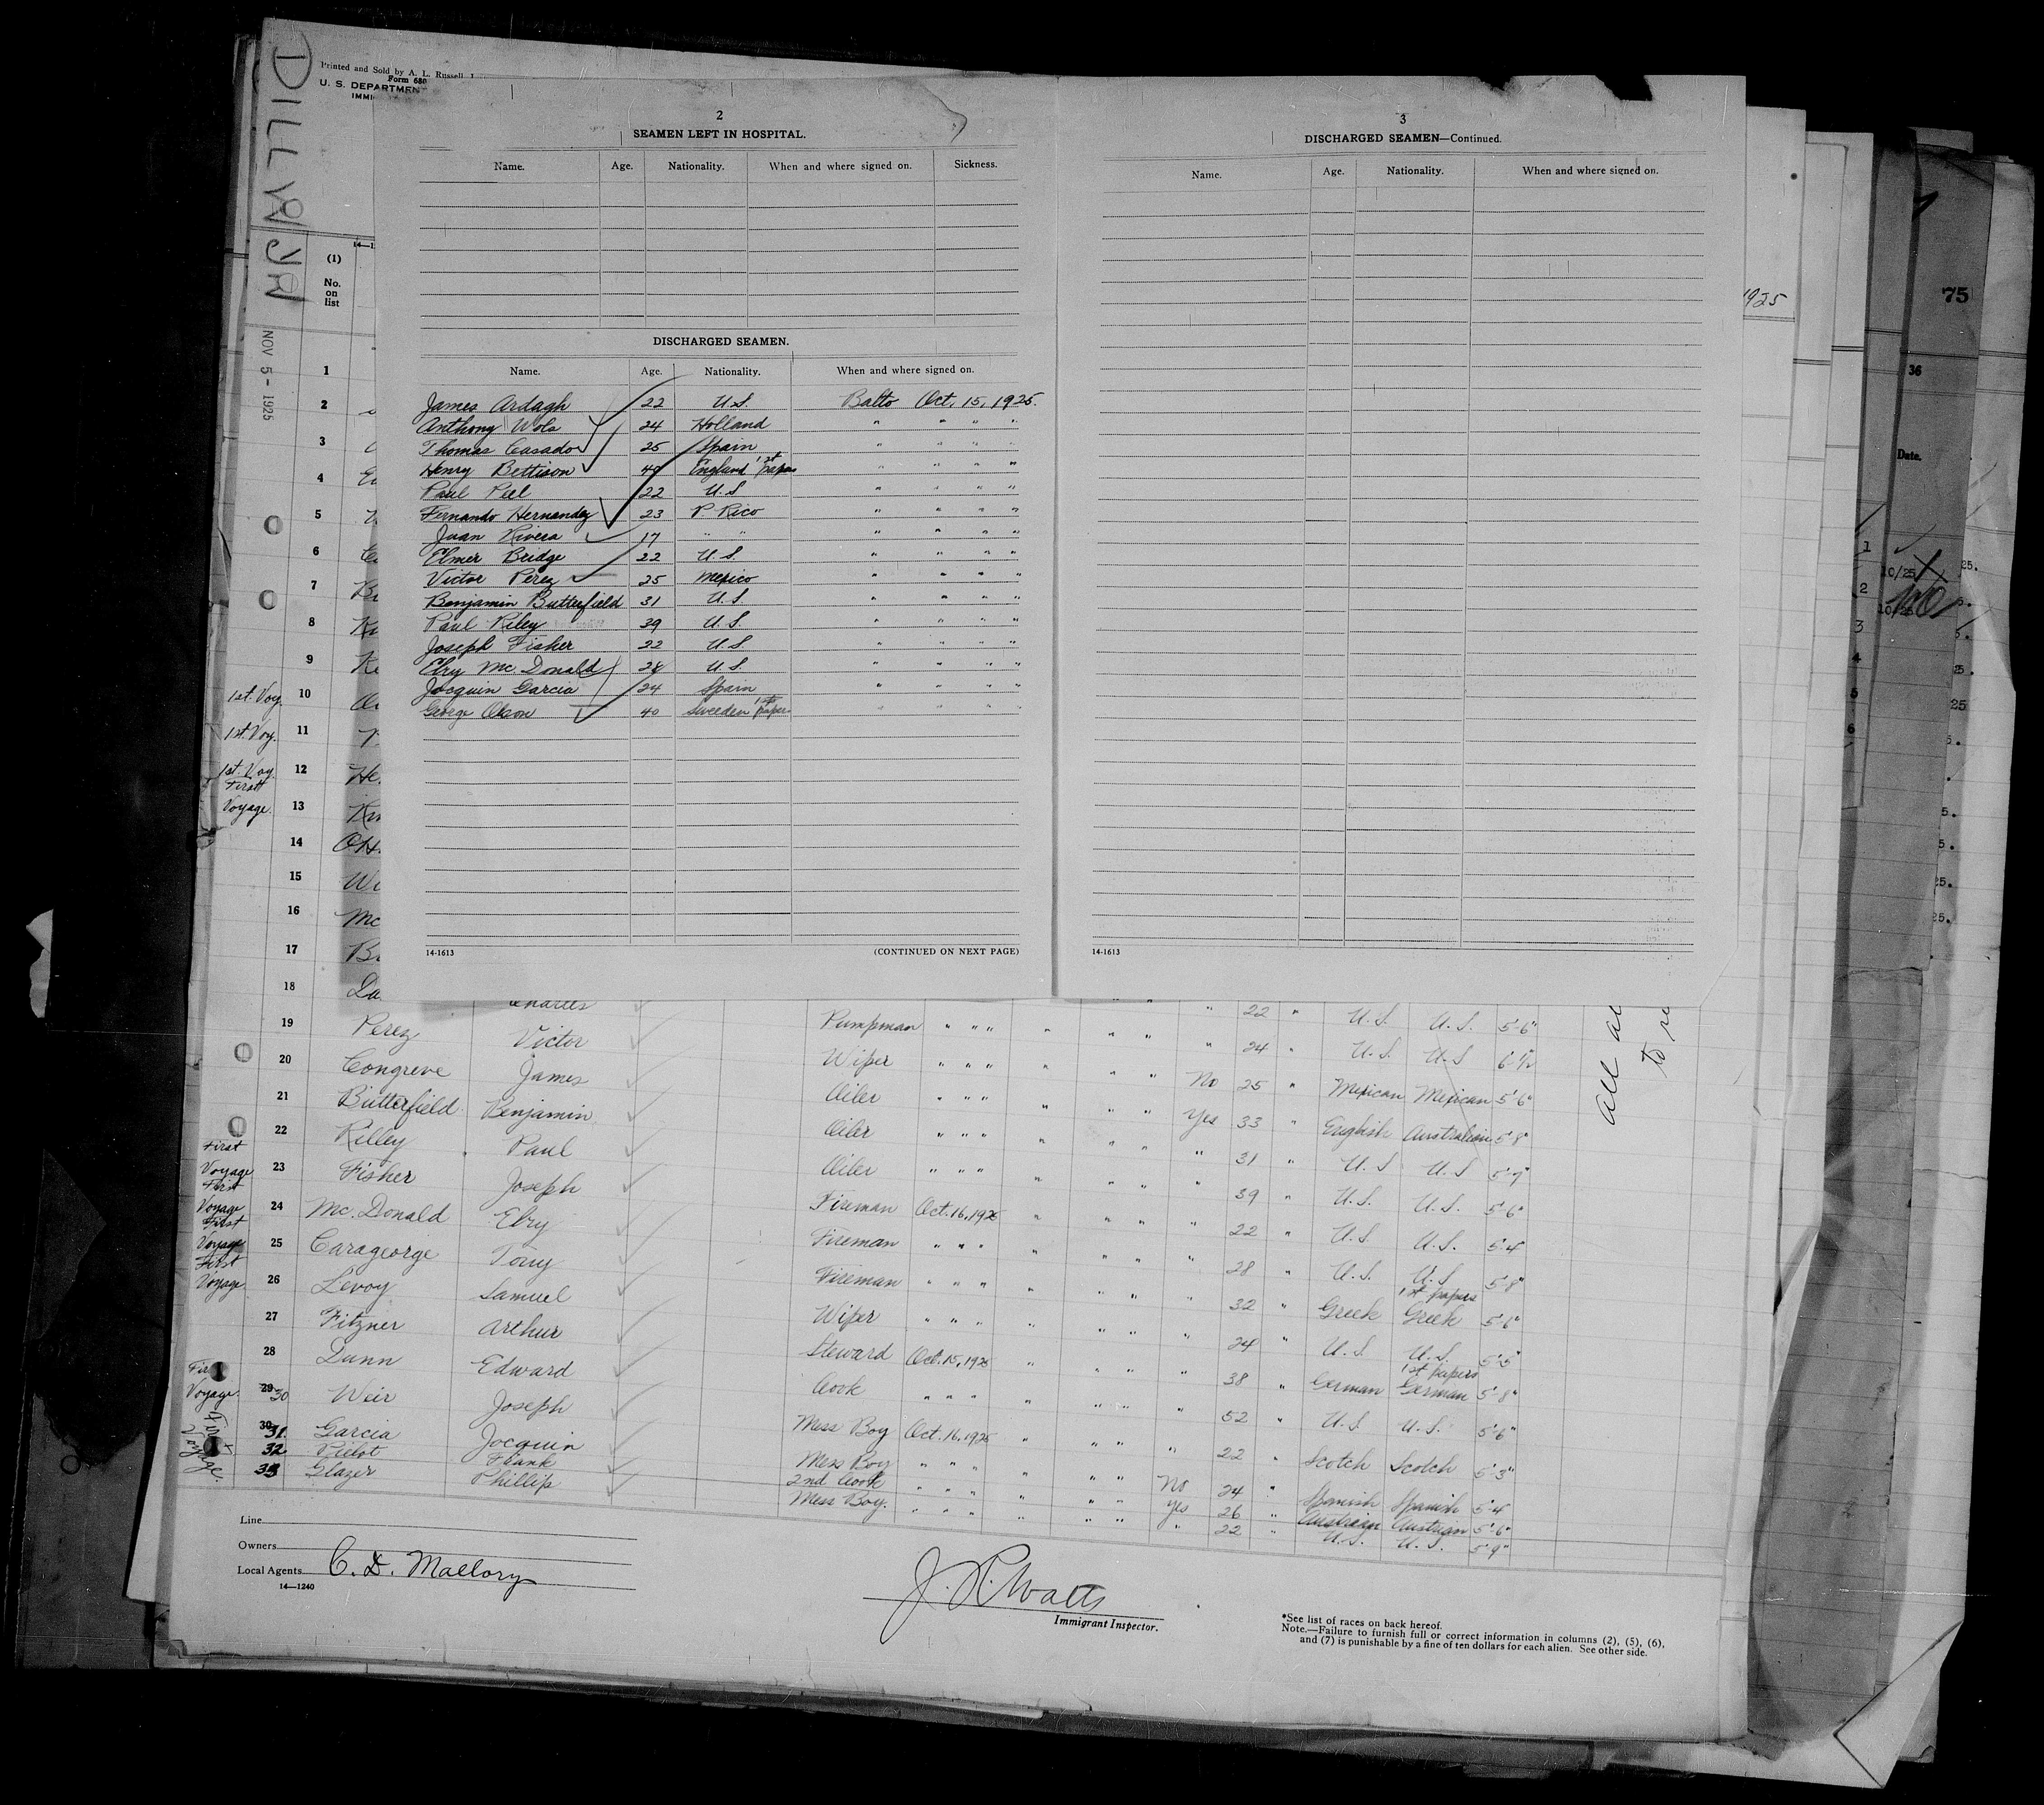 DILLWJR
NOV 5 - 1925
Printed and Sold by A. L. Russell
Form 680
U. S. DEPARTMENT
IMMI
(1)
No.
on
list
2
SEAMEN LEFT IN HOSPITAL.
Name. Age. Nationality. When and where signed on. Sickness.
DISCHARGED SEAMEN.
Name. Age. Nationality. When and where signed on.
James Ardagh 22 U.S. Balto Oct. 15, 1925.
Anthony Wols 24 Holland " " " "
Thomas Casado 25 Spain " " " "
Henry Bettison 49 England 1st papers " " " "
Paul Peel 22 U.S " " " "
Fernando Hernandez 23 P. Rico " " " "
Juan Rivera 17 " " " " " "
Elmer Bridge 22 U.S. " " " "
Victor Perez 25 Mexico " " " "
Benjamin Butterfield 31 U.S. " " " "
Paul Riley 39 U.S. " " " "
Joseph Fisher 22 U.S. " " " "
Elry Mc. Donald 28 U.S. " " " "
Jocquin Garcia 24 Spain " " " "
George Olson 40 Sweeden 1st papers " " " "
14-1613 (CONTINUED ON NEXT PAGE)
3
DISCHARGED SEAMEN—Continued.
Name. Age. Nationality. When and where signed on.
14-1613
1925
75
36
Date.
10/25
1
2
3
4
5
6
1
2
3
4
5
6
7
8
9
1st. Voy. 10
1st. Voy. 11
1st. Voy. 12
First
Voyage. 13
14
15
16
17
18 Charles
22 " U.S. U.S. 5'6"
19 Perez Victor Pumpman " " " " " "
" 24 " U.S. U.S 6'½
20 Congreve James Wiper " " " " " "
No 25 " Mexican Mexican 5'6"
21 Butterfield Benjamin Oiler " " " " " "
Yes 33 " English Australian 5'8"
22 Rilley Paul Oiler " " " " " "
" 31 " U.S U.S 5'7"
First
Voyage 23 Fisher Joseph Oiler " " " " " "
" 39 " U.S. U.S. 5'6"
First
Voyage 24 Mc. Donald Elry Fireman Oct. 16, 1925 " " "
" 22 " U.S U.S. 5'4"
First
Voyage 25 Carageorge Tony Fireman " " " " " "
" 28 " U.S. U.S 5'8"
First
Voyage 26 Levoy Samuel Fireman " " " " " "
" 32 " Greek 1st papers Greek 5'6"
27 Fitzner Arthur Wiper " " " " " "
" 24 " U.S U.S. 5'5"
28 Dunn Edward Steward Oct. 15, 1925 " " "
" 38 " German 1st papers German 5'8"
Voyage. 29 30 Weir Joseph Cook " " " " " "
52 " U.S. U.S. 5'6"
First
Voyage. 30 31. Garcia Jocquin Mess Boy Oct. 16, 1925 " " "
" 22 " Scotch Scotch 5'3"
32 Frank Mess Boy " " " " " "
No 24 " Spanish Spanish 5'4"
33 Glazer Phillip 2nd Cook " " " " " "
Yes 26 " Austrian Austrian 5'6"
Mess Boy. " " " " " " " 22 " U.S. U.S. 5'9"
Line
Owners
Local Agents C. D. Mallory
14—1240
J. R. Watts
Immigrant Inspector.
*See list of races on back hereof.
Note.—Failure to furnish full or correct information in columns (2), (5), (6),
and (7) is punishable by a fine of ten dollars for each alien. See other side.